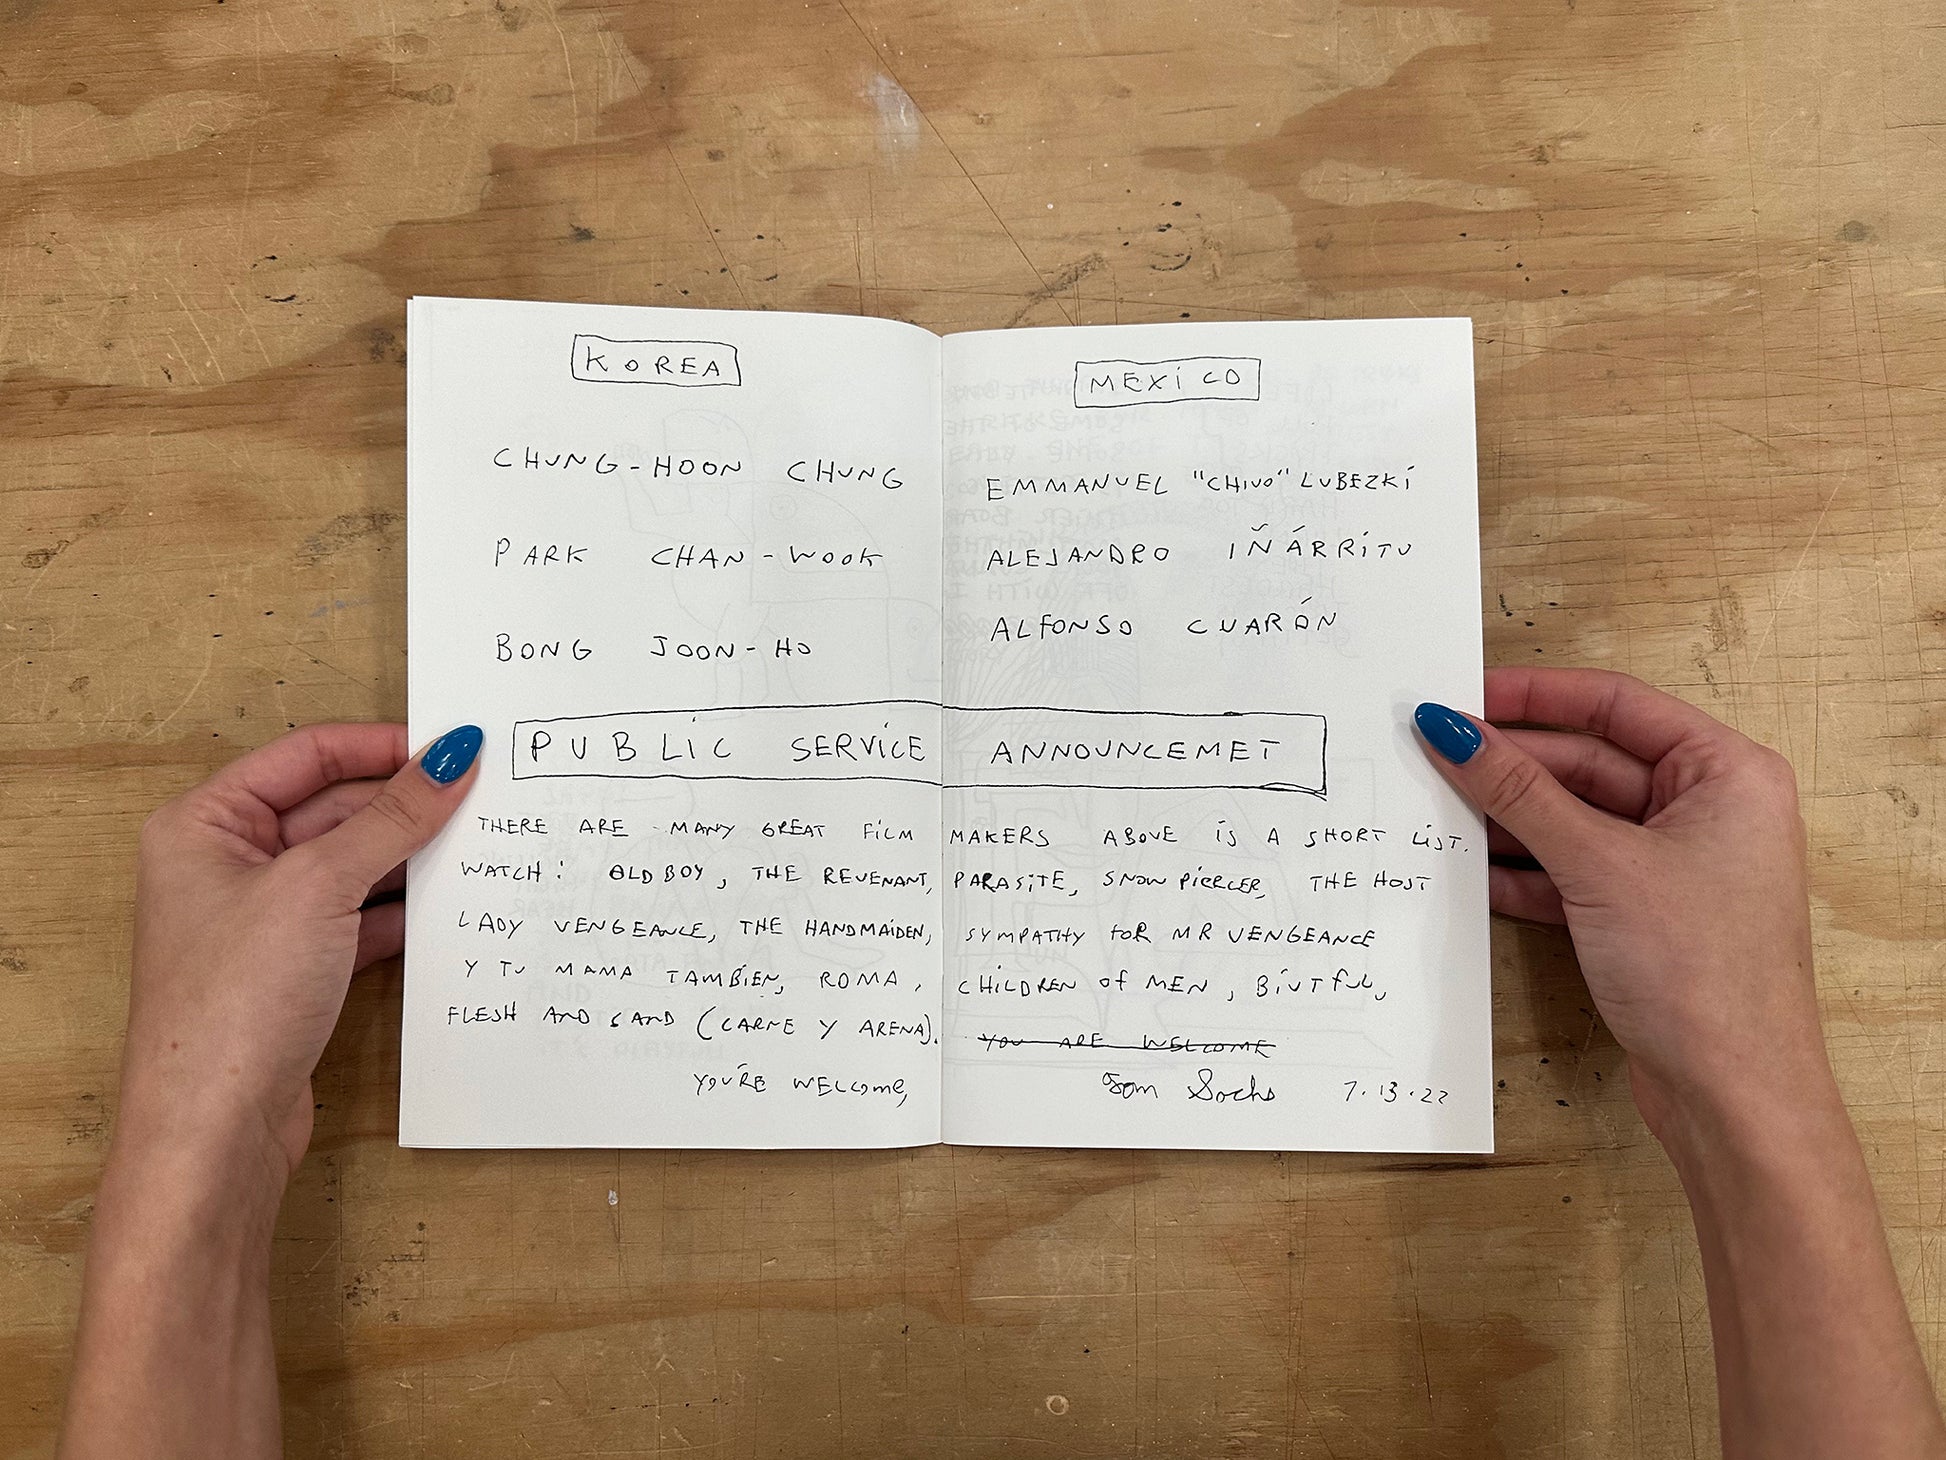 KOREA
CHUNG-HOON CHUNG
PARK CHAN-WOOK
BONG JOON-HO
MEXICO
EMMANUEL "CHIVO" LUBEZKI
ALEJANDRO IÑÁRRITU
ALFONSO CUARÓN
PUBLIC SERVICE ANNOUNCEMET
THERE ARE MANY GREAT FILM MAKERS ABOVE IS A SHORT LIST.
WATCH: OLD BOY, THE REVENANT, PARASITE, SNOW PIERCER, THE HOST
LADY VENGEANCE, THE HANDMAIDEN, SYMPATHY FOR MR VENGEANCE
Y TU MAMA TAMBIEN, ROMA, CHILDREN OF MEN, BIUTFUL,
FLESH AND SAND (CARNE Y ARENA). YOU ARE WELCOME
YOU'RE WELCOME, Tom Sachs 7.13.22